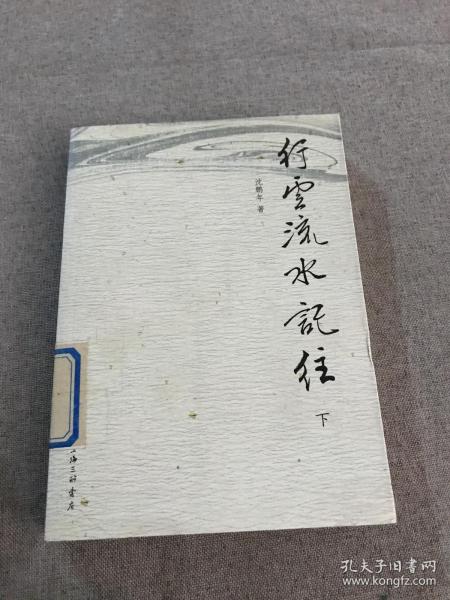 行雲流水記往
沈鹏年 著
下
上海三联书店
孔夫子旧书网
www.kongfz.com